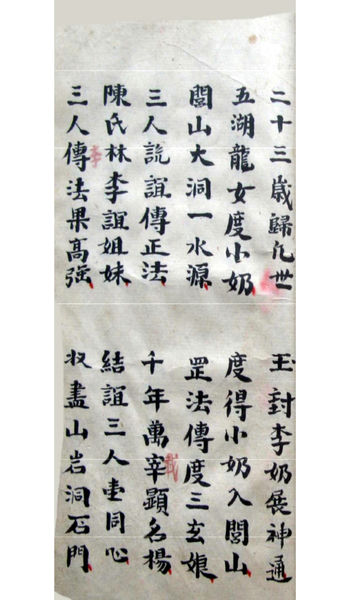 二十三歲歸凡世
玉封李奶展神通
五湖龍女度小奶
度得小奶入閭山
閭山大洞一水源
罡法傳度三玄娘
三人説誼傳正法
千年萬宰顯名楊
陳氏林李誼姐妹
結誼三人壹同心
三人傳法果高强
収盡山岩洞石門